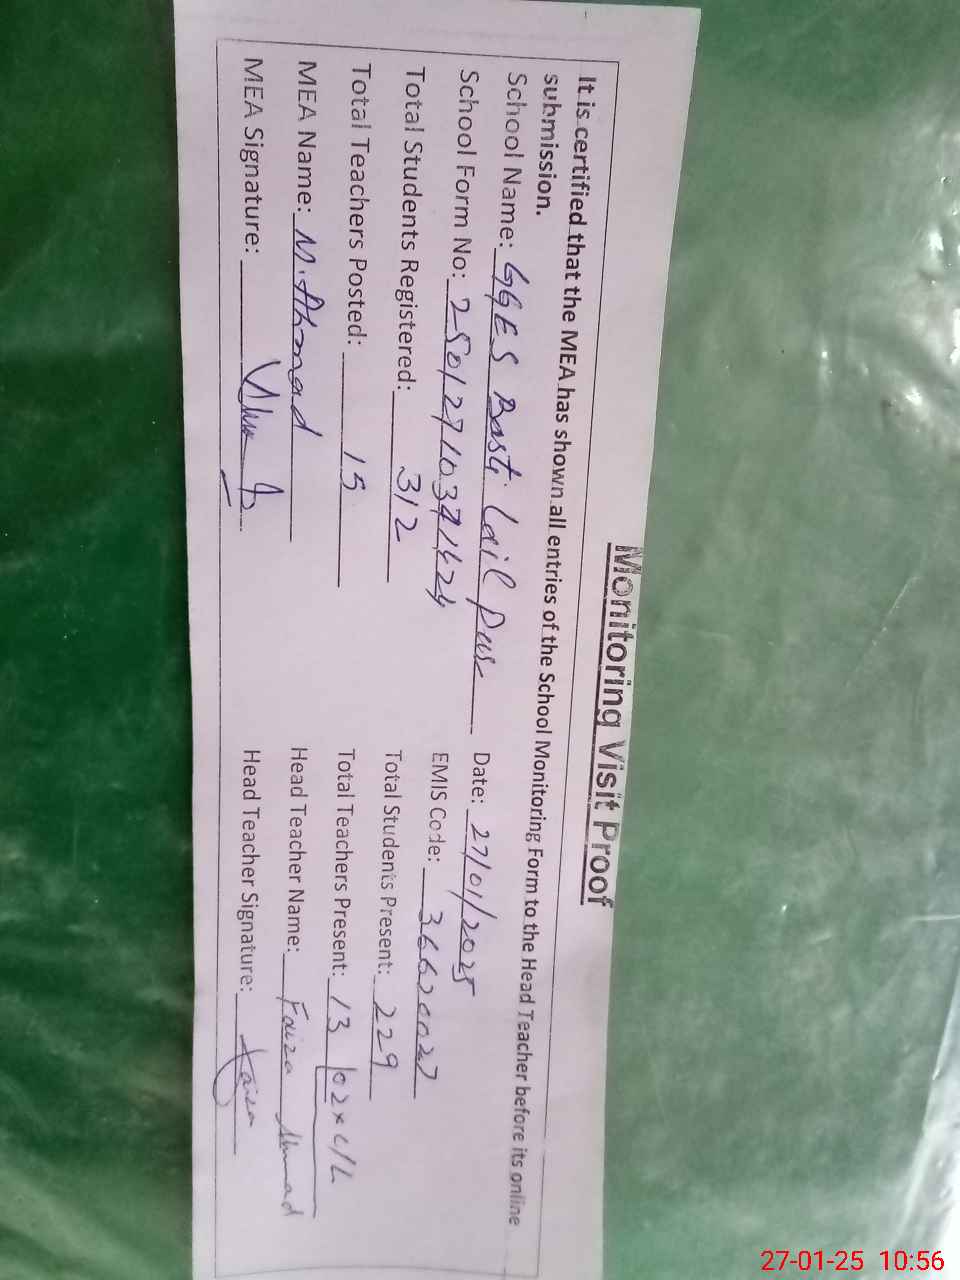 Monitoring Visit Proof
It is certified that the MEA has shown all entries of the School Monitoring Form to the Head Teacher before its online
submission.
School Name: GGES Basti Lail Pur Date: 27/01/2025
School Form No: EMIS Code: 36620027
Total Students Registered: 312 Total Students Present: 229
Total Teachers Posted: 15 Total Teachers Present: 13 02x C/L
MEA Name: M. Ahmad Head Teacher Name: Faiza Ahmad
MEA Signature: Head Teacher Signature: Faiza
27-01-25 10:56